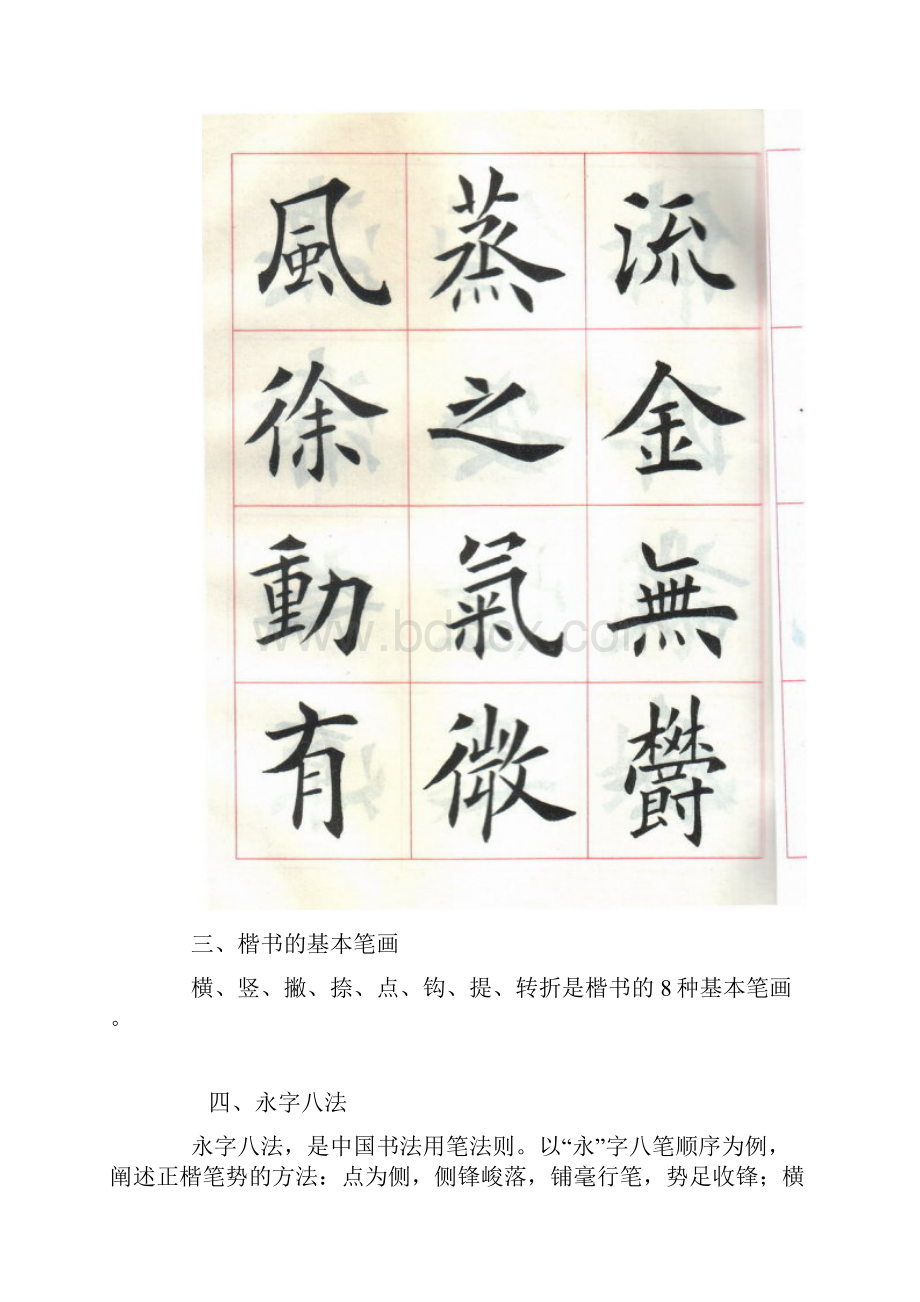 流金無欝
蒸之氣微
風徐動有
www.bdocx.com
三、楷书的基本笔画
横、竖、撇、捺、点、钩、提、转折是楷书的8种基本笔画
。
四、永字八法
永字八法，是中国书法用笔法则。以“永”字八笔顺序为例，
阐述正楷笔势的方法：点为侧，侧锋峻落，铺毫行笔，势足收锋；横